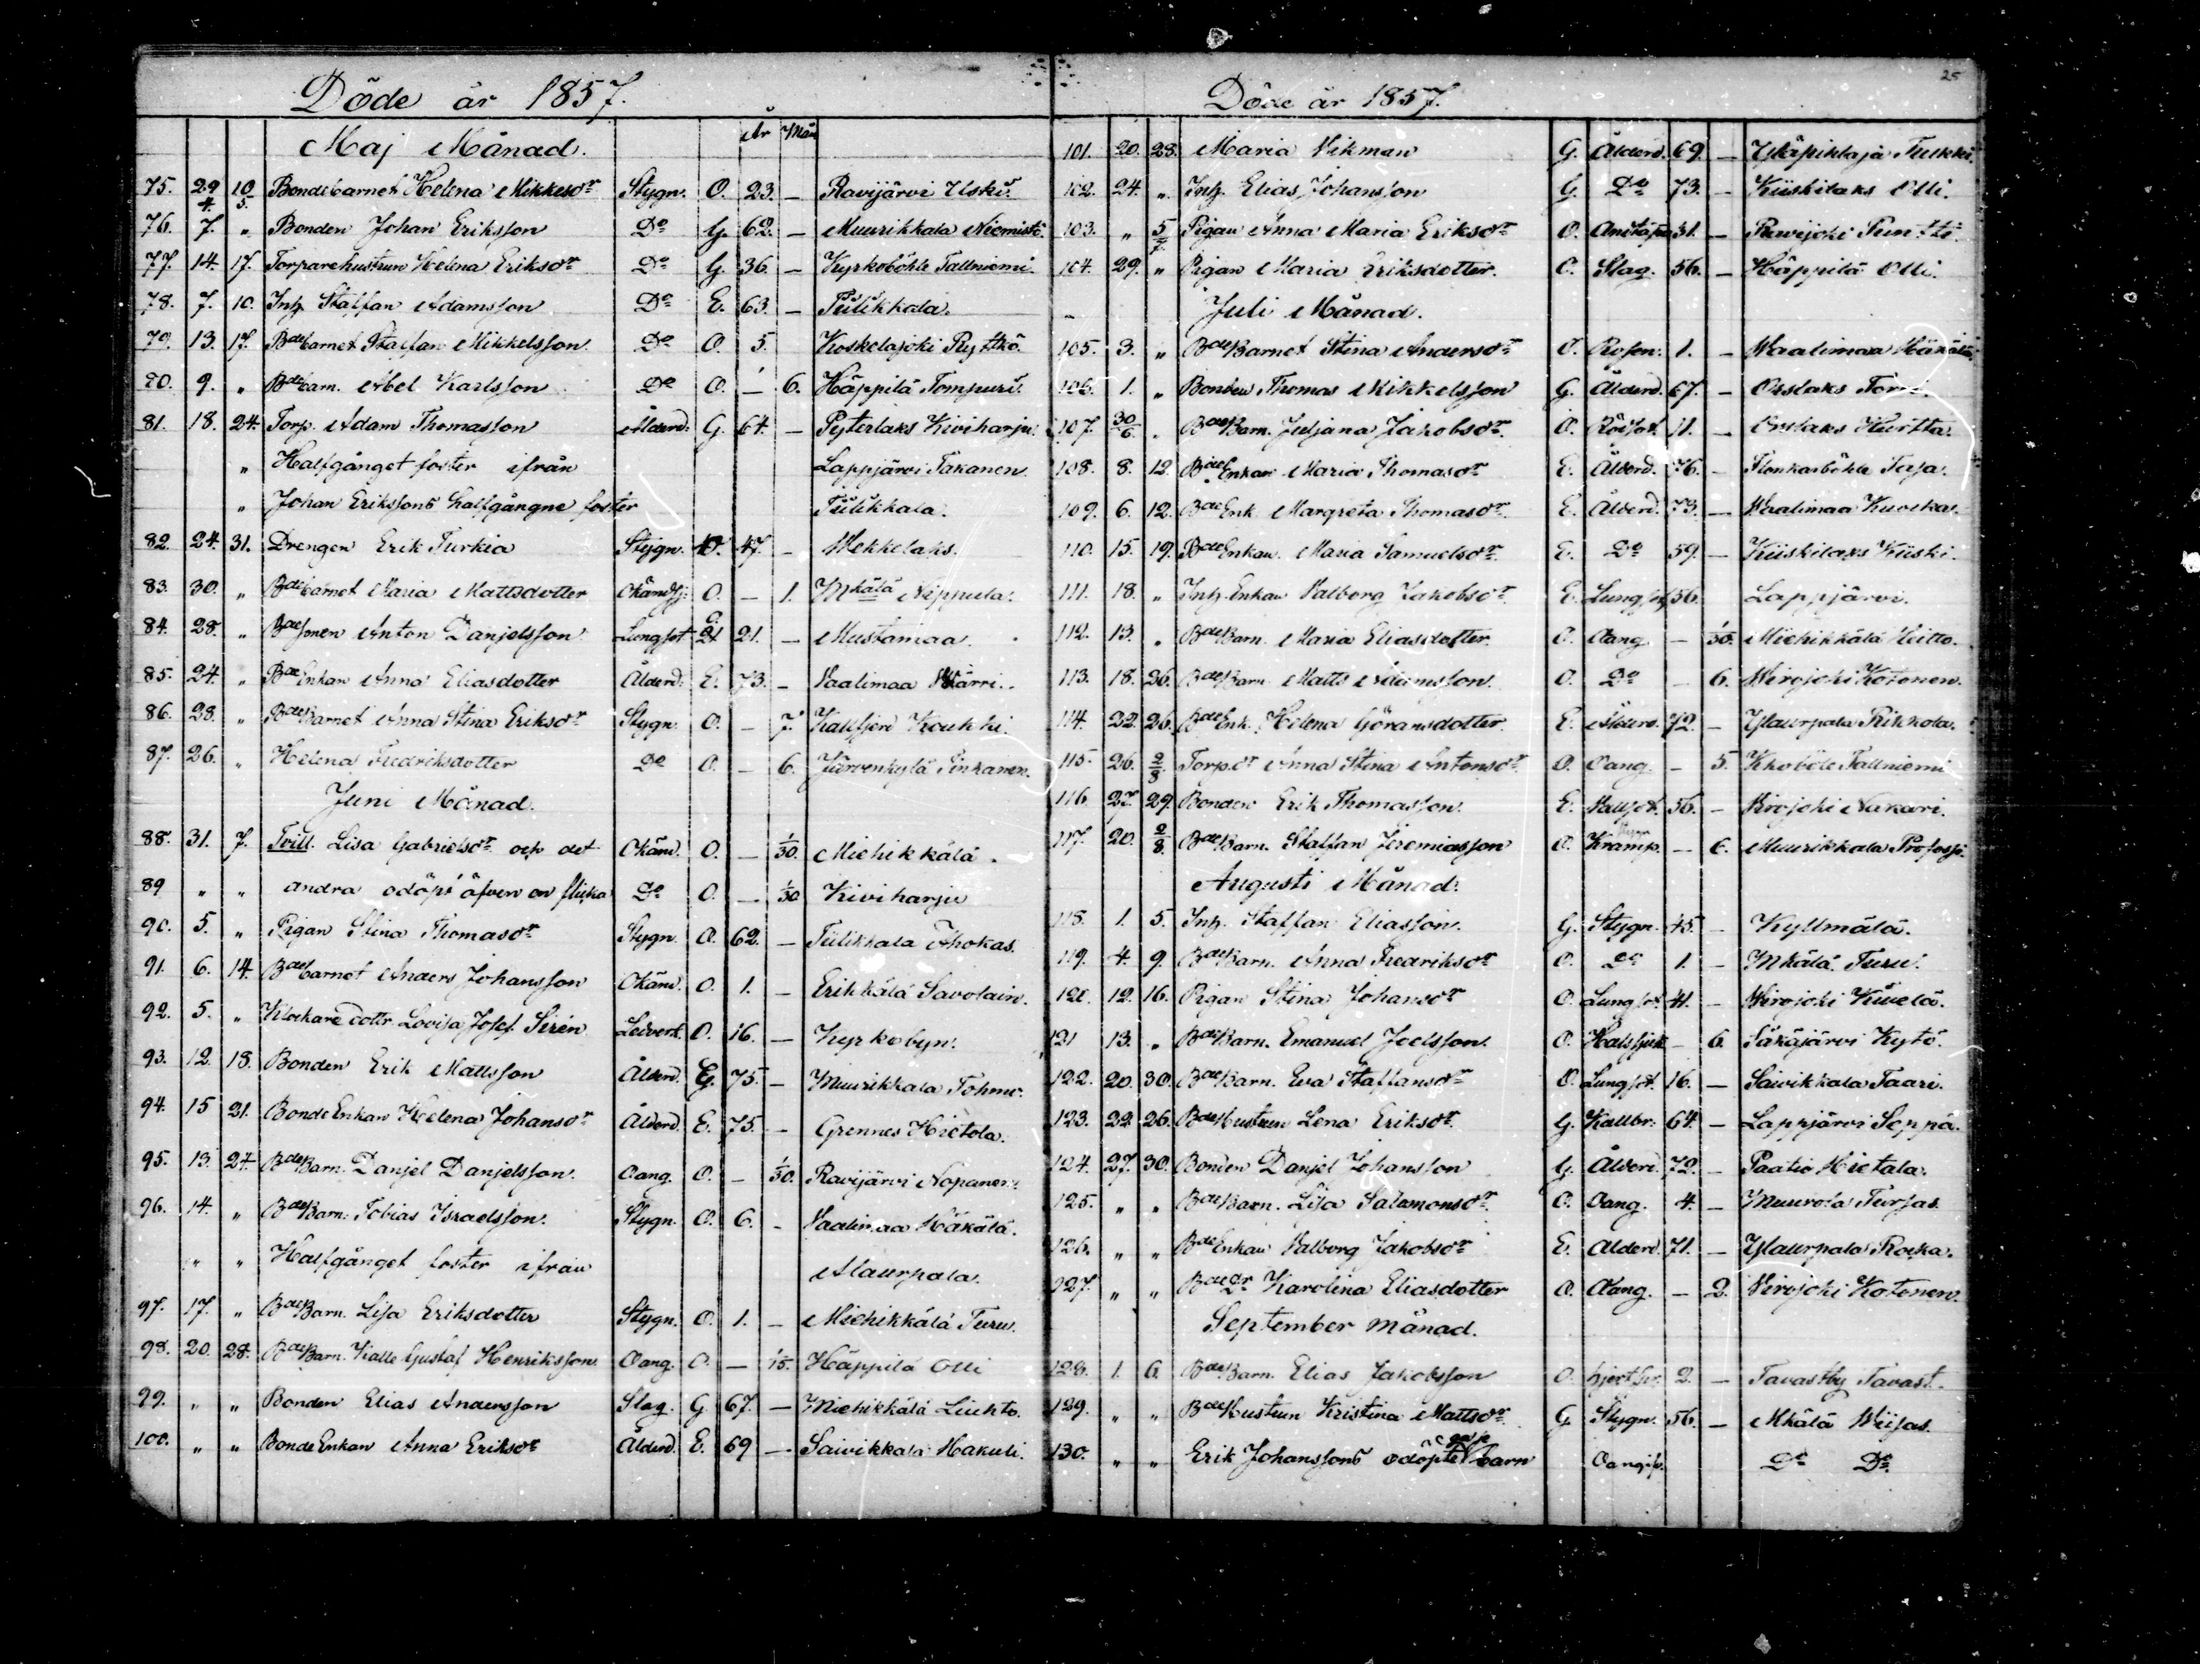 Döde år 1857.
År Mån
Maj Månad.
75. 29/4 10/5 Bondebarnet Helena Mikkelsdr Stygn. O. 23. — Ravijärvi Uski.
76. 7. „ Bonden Johan Eriksson Do G. 62. — Muurikkala Niemistö.
77. 14. 17. Torparehustrun Helena Eriksdr Do G. 36. — Kyrkoböhle Tallniemi
78. 7. 10. Inh. Staffan Adamsson Do E. 63. — Tülikkala.
79. 13. 17. Bdebarnet Staffan Mikkelsson Do O. 5. Koskelajoki Pyttkö
80. 9. „ Bdebarn. Abel Karlsson Do O. — 6. Häppilä Tompuri.
81. 18. 24. Torp. Adam Thomasson Ålderd. G. 64. — Pyterlaks Kiviharju.
„ Halfgånget foster ifrån Lappjärvi Takanen.
„ Johan Erikssons halfgångne foster Tülikkala.
82. 24. 31. Drengen Erik Turkia Stygn. O. 47. — Mekkelaks.
83. 30. „ Bdebarnet Maria Mattsdotter Okänd sj. O. — 1. Mkälä Nippula.
84. 28. „ Bdesonen Anton Danjelsson Lungsot 21. — Mustamaa.
85. 24. „ Bde Enkan Anna Eliasdotter Ålderd. E. 73. — Vaalimaa Närri.
86. 28. „ BdeBarnet Anna Stina Eriksdr Stygn. O. — 7. Kallfjerd Koukki.
87. 26. „ Helena Fredriksdotter Do O. — 6. Järvenkylä Sinkanen.
Juni Månad.
88. 31. 7. Tvill. Lisa Gabrielsdr och det Okänd. O. — 1/30. Miehikkälä.
89 „ „ andra odöpt äfven en flicka Do O. — 1/30 Kiviharju
90. 5. „ Pigan Stina Thomasdr Stygn. O. 62. — Tülikkala Ahokas.
91. 6. 14. Bdebarnet Anders Johansson Okänd. O. 1. — Erikkälä Savolain.
92. 5. „ Klockare dottr. Lovisa Josef. Sirén Ledverk O. 16. — Kyrkobyn.
93. 12. 18. Bonden Erik Mattsson Ålderd. G. 75. — Muurikkala Tohmo.
94. 15 21. BondeEnkan Helena Johansdr Ålderd. E. 75. — Grennes Hietola.
95. 13. 24. BdeBarn. Danjel Danjelsson. Oang. O. — 1/30. Ravijärvi Nopanen.
96. 14. „ BdeBarn. Tobias Israelsson. Stygn. O. 6. — Vaalimaa Häkälä.
„ „ Halfgånget foster ifrån Alaurpala.
97. 17. „ BdeBarn. Lisa Eriksdotter Stygn. O. 1. — Miehikkälä Turu.
98. 20. 28. BdeBarn. Kalle Gustaf Henriksson. Oang. O. — 1/15. Häppilä Olli
99. „ „ Bonden Elias Andersson Slag. G 67. — Miehikkälä Liehto.
100. „ „ BondeEnkan Anna Eriksdr Ålderd. E. 69 — Saivikkala Hakuli.
25
Döde år 1857.
101. 20. 28. Maria Vikman G. Ålderd. 69. — Yläpihlaja Tulkki.
102. 24. „ Inh. Elias Johansson G. Do 73. — Kiiskilaks Olli.
103. „ 5/7 Pigan Anna Maria Eriksdr O. 31. — Ravijoki Puntti.
104. 29. „ Pigan Maria Eriksdotter. O. Slag. 56. — Häppilä Olli.
Juli Månad.
105. 3. „ BdeBarnet Stina Andersdr O. Rosen. 1. — Vaalimaa Häkälä
106. 1. „ Bonden Thomas Mikkelsson G. Ålderd. 67. — Orslaks
107. 30/6 „ BdeBarn. Juljana Jakobsdr O. Rödsot. 11. — Orslaks Hurtta.
108. 8. 12. Bde Enkan Maria Thomasdr E. Ålderd. 76. — Flonkarböhle Taja.
109. 6. 12. Bde Enk. Margreta Thomasdr E. Ålderd. 73. — Vaalimaa Kuoska.
110. 15. 19. Bde Enkan. Maria Samuelsdr E. Do 59. — Kiiskilaks Kiiski.
111. 18. „ Inh. Enkan Valborg Jakobsdr E. Lungsot 56. Lappjärvi.
112. 13. „ BdeBarn. Maria Eliasdotter. O. Oang. — 1/30. Miehikkälä Heitto.
113. 18. 26. BdeBarn. Matts Adamsson. O. Do — 6. Wirojoki Kotonen.
114. 22. 26. Bde Enk. Helena Göransdotter. E. Ålderd. 72. — Ylaurpala Rikkola.
115. 26. 2/8 Torp.dr Anna Stina Antonsdr O. Oang. — 5. Kkoböle Tallniemi
116. 27. 29. Bonden Erik Thomasson. E. 56. — Virojoki Nakari.
117. 20. 2/8. BdeBarn. Staffan Jeremiasson O. Kramp. — 6. Muurikkala Profossi.
Augusti Månad.
118. 1. 5. Inh. Staffan Eliasson. G. Stygn. 45. — Kyllmälä.
119. 4. 9. BdeBarn. Anna Fredriksdr O. Do 1. — Mkälä Turu.
120. 12. 16. Pigan Stina Johansdr O. Lungsot. 41. — Wirojoki Kivelä.
121 13. „ BdeBarn. Emanuel Joelsson. O. Halssjuk — 6. Säkäjärvi Kytö.
122. 20. 30. BdeBarn. Eva Staffansdr O. Lungsot. 16. — Saivikkala Taari.
123. 22. 26. BdeHustrun Lena Eriksdr G. Kallbr. 64. — Lappjärvi Seppä.
124. 27. 30. Bonden Danjel Johansson G. Ålderd. 72. — Paatio Hietala.
125. „ „ BdeBarn. Lisa Salamonsdr O. Oang. 4. — Muurola Turjas.
126. „ „ BdeEnkan Valborg Jakobsdr E. Ålderd. 71. — Ylaurpala Rocka.
127. „ „ Bdedr Karolina Eliasdotter O. Oang. — 2. Virojoki Kotonen.
September månad.
128. 1. 6. BdeBarn. Elias Jakobsson O. 2. — Tavastby Tavast.
129. „ „ BdeHustrun Kristina Mattsdr G. Stygn. 56. — Mkälä Wiijas.
130. „ „ Erik Johanssons odöpte barn Oang. Do Do.